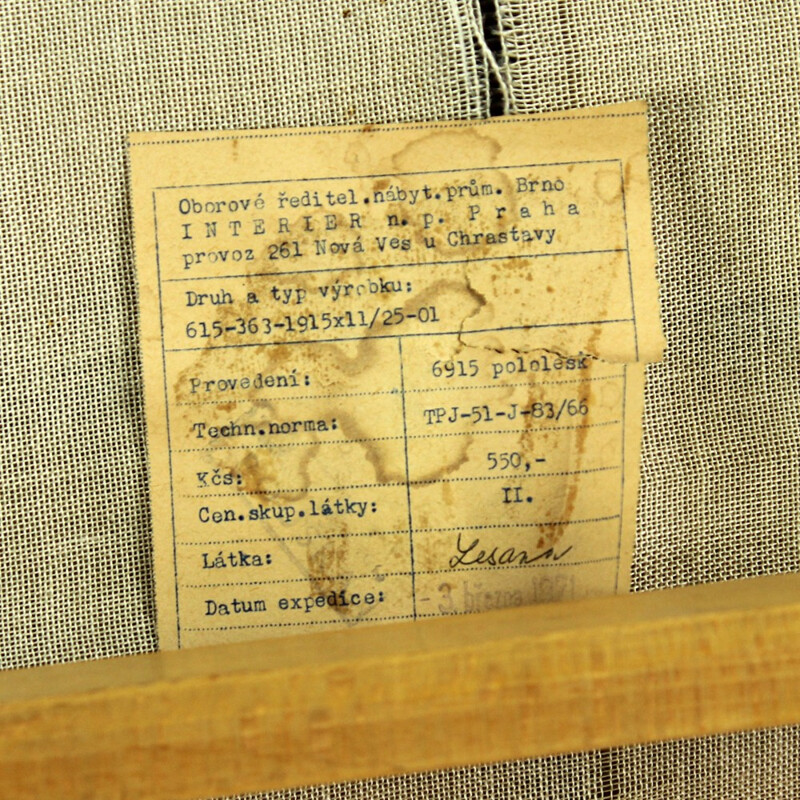 Oborové ředitel.nábyt.prům. Brno
INTERIER n.p. Praha
provoz 261 Nová Ves u Chrastavy
Druh a typ výrobku:
615-363-1915x11/25-01
Provedení: 6915 pololesk
Techn.norma: TPJ-51-J-83/66
Kčs: 550,-
Cen.skup.látky: II.
Látka:
Datum expedice: - 3 března